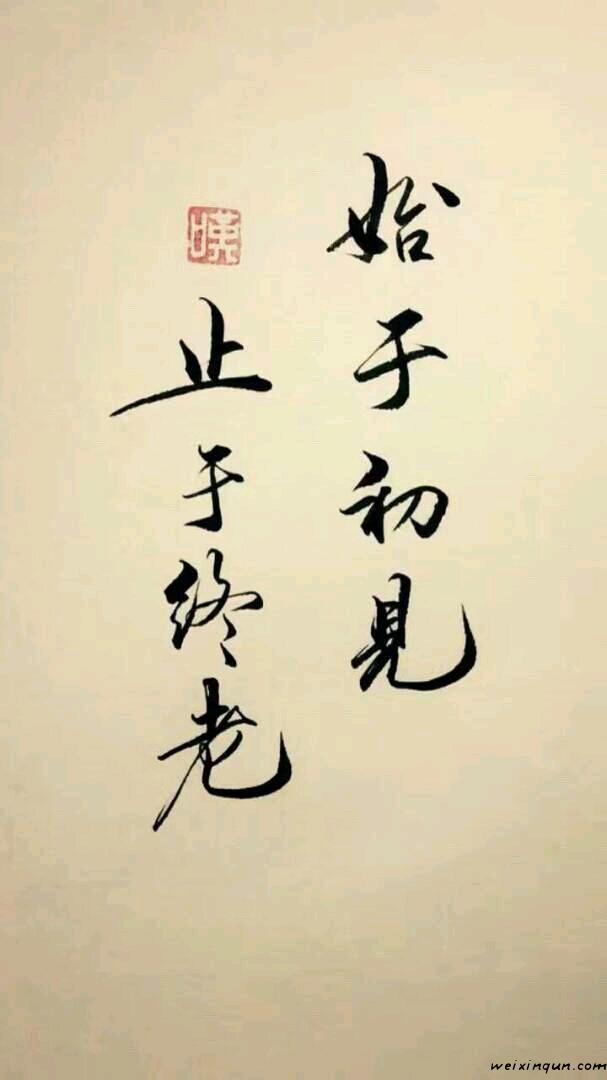 始于初見
止于终老
weixinqun.com